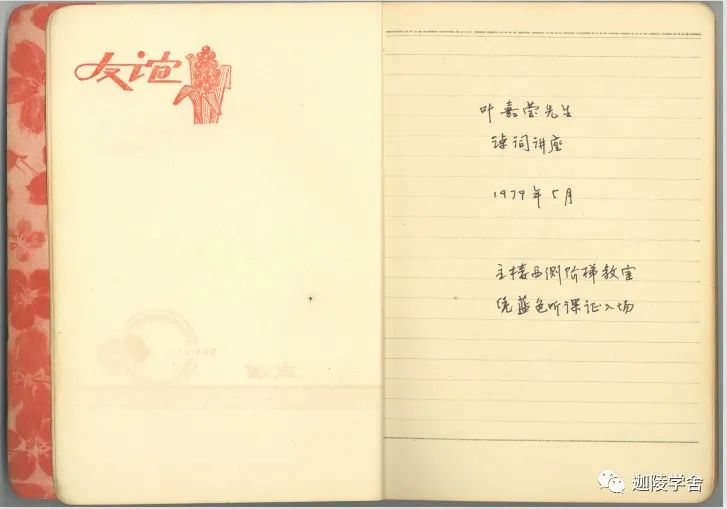 友谊
叶嘉莹先生
诗词讲座
1979年5月
主楼西侧阶梯教室
凭蓝色听课证入场
迦陵学舍